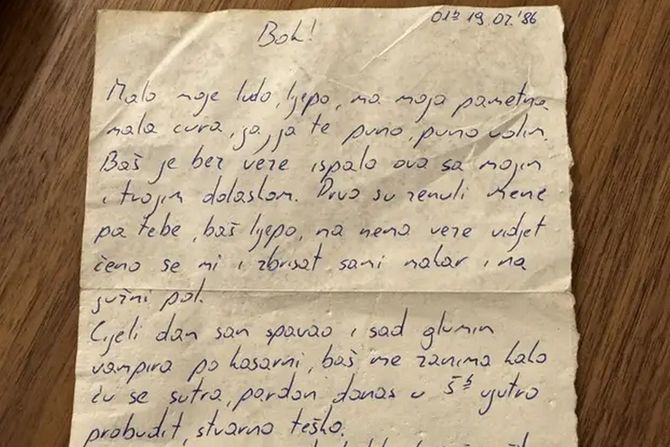 01h 19.07.'86
Bok!
Malo moje ludo, ljepo, ma moja pametna
mala cura, ja, ja te puno, puno volim.
Baš je bez veze ispalo ova sa mojim
i tvojim dolaskom. Prvo su zeznuli mene
pa tebe, baš ljepo, ma nema veze vidjet
ćemo se mi i zbrisat sami makar i na
južni pol.
Cijeli dan sam spavao i sad glumim
vampira po kasarni, baš me zanima kako
ću se sutra, pardon danas u 5h ujutro
probudit, stvarno teško.